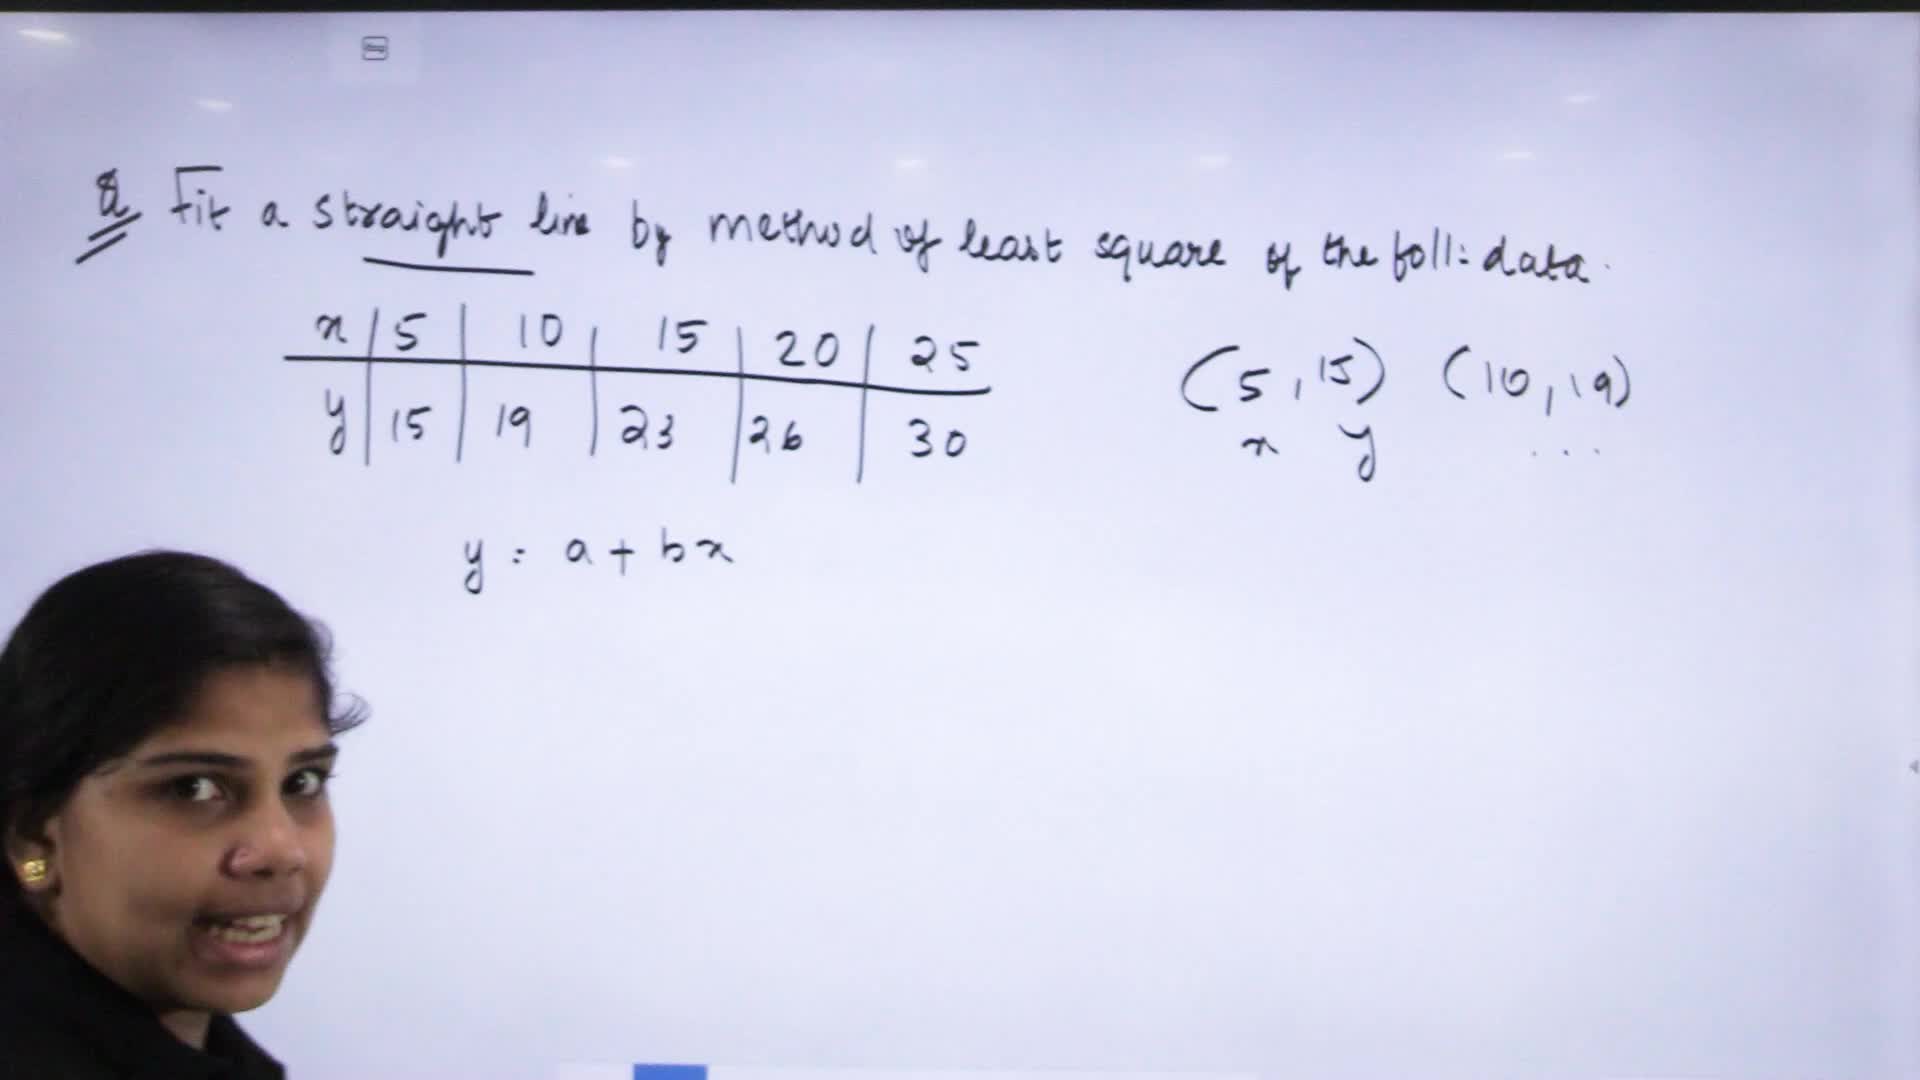 Q Fit a straight line by method of least square of the foll: data.
x 5 10 15 20 25
y 15 19 23 26 30
(5, 15) (10, 19)
x y ...
y = a + bx